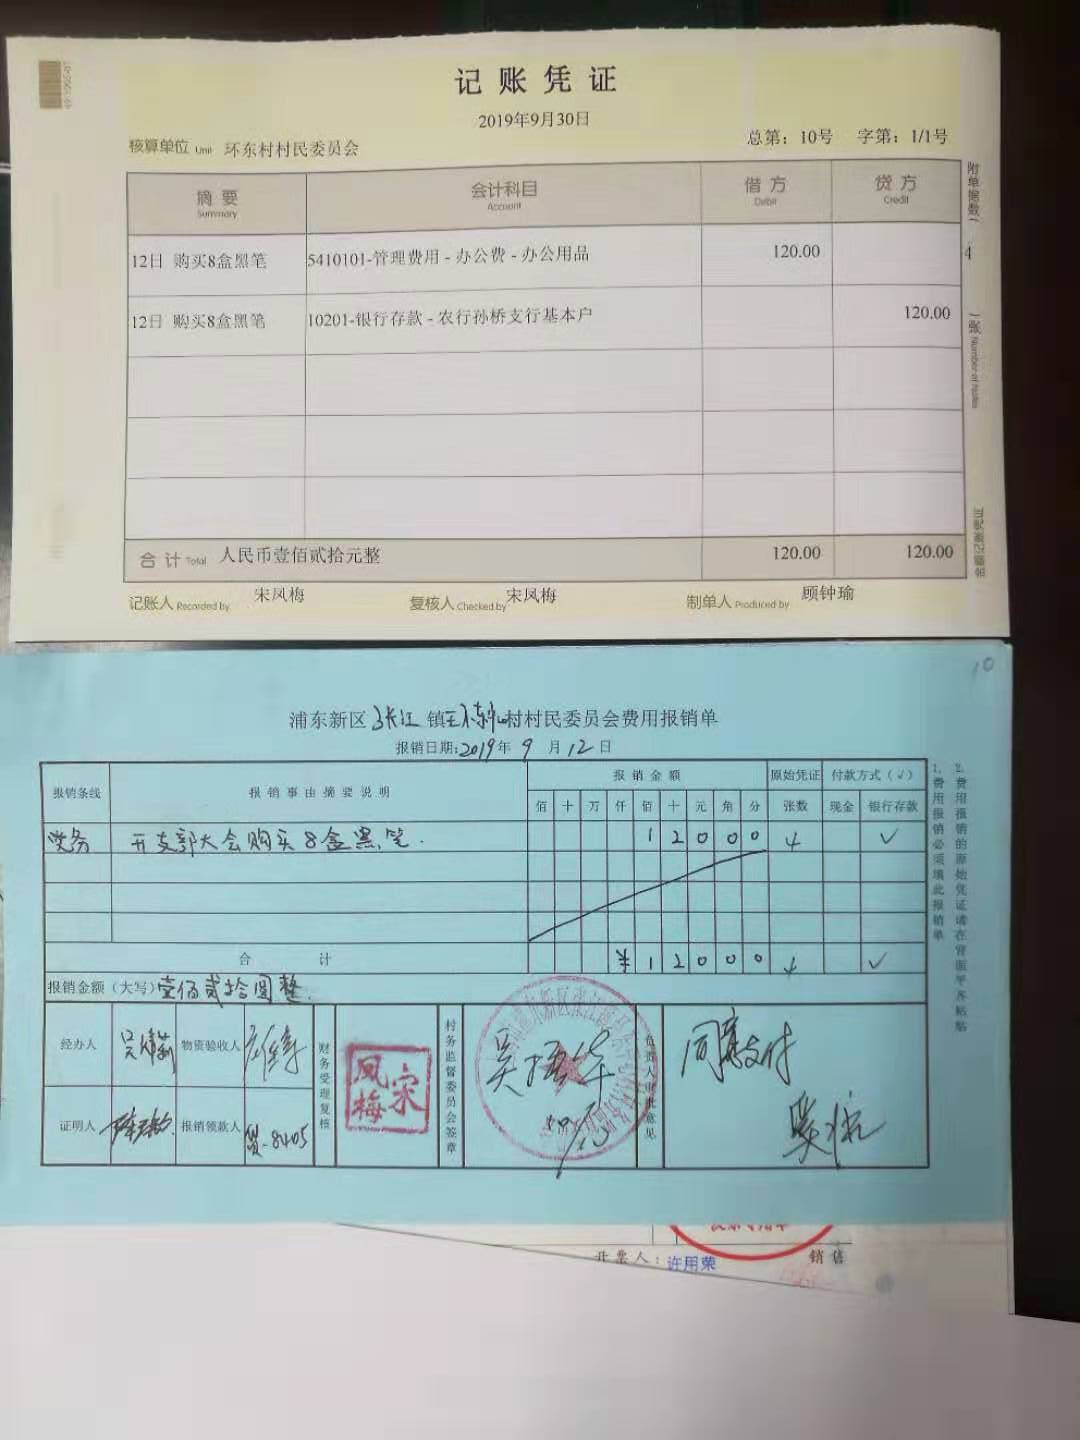 记账凭证
2019年9月30日
核算单位 Unit 环东村村民委员会 总第：10号 字第：1/1号
摘要 Summary 会计科目 Account 借方 Debit 贷方 Credit
附单据数( 4 )张 Number of Notes
12日 购买8盒黑笔 5410101-管理费用 - 办公费 - 办公用品 120.00
12日 购买8盒黑笔 10201-银行存款 - 农行孙桥支行基本户 120.00
合计 Total 人民币壹佰贰拾元整 120.00 120.00
金额记账凭证
记账人 Recorded by 宋凤梅 复核人 Checked by 宋凤梅 制单人 Produced by 顾钟瑜
10
浦东新区张江镇环东村村民委员会费用报销单
报销日期:2019年9月12日
报销条线 报销事由摘要说明 报销金额 原始凭证 付款方式(√)
佰 十 万 仟 佰 十 元 角 分 张数 现金 银行存款
党务 开支部大会购买8盒黑笔. 1 2 0 0 0 4 √
合计 ¥ 1 2 0 0 0 4 √
报销金额(大写)壹佰贰拾圆整.
1.费用报销必须填此报销单
2.费用报销的原始凭证请在背面平齐粘贴
经办人 物资验收人
证明人 报销领款人 8405
财务受理复核 宋凤梅
村务监督委员会签章 吴
负责人审批意见 同意支付
开票人：许用荣 销售